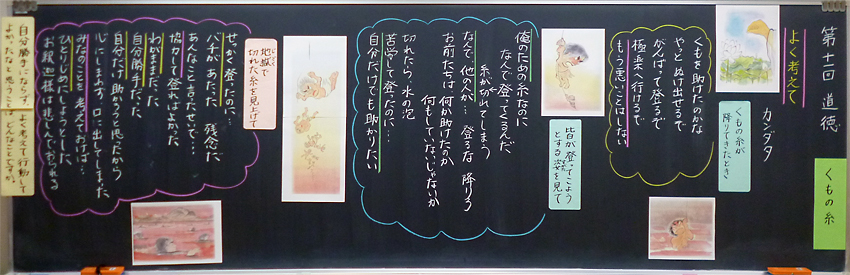 第十一回 道徳
くもの糸
よく考えて
カンダタ
くもの糸が
降りてきたとき
くもを助けたのかな
やっと ぬけ出せるぞ
がんばって登るぞ
極楽へ行けるぞ
もう悪いことはしない
皆が登ってこよう
とする姿を見て
俺のための糸なのに
なんで登ってくるんだ
糸が切れてしまう
なんで、他の人が… 登るな 降りろ
お前たちは何か助けたのか
何もしていないじゃないか
切れたら、水の泡
苦労して登ったのに…
自分だけでも助かりたい
地獄で
切れた糸を見上げて
せっかく登ったのに…
バチがあたった 残念だ
あんなこと言ったせいで…
協力して登ればよかった
わがままだった
自分勝手だった
自分だけ助かろうと思ったから
心にしまえず、口に出してしまった
みなのことを考えておけば…
ひとりじめにしようとした
お釈迦様は悲しんでおられる
自分勝手にならず、よく考えて行動して
よかったなと思うことはどんなことですか。